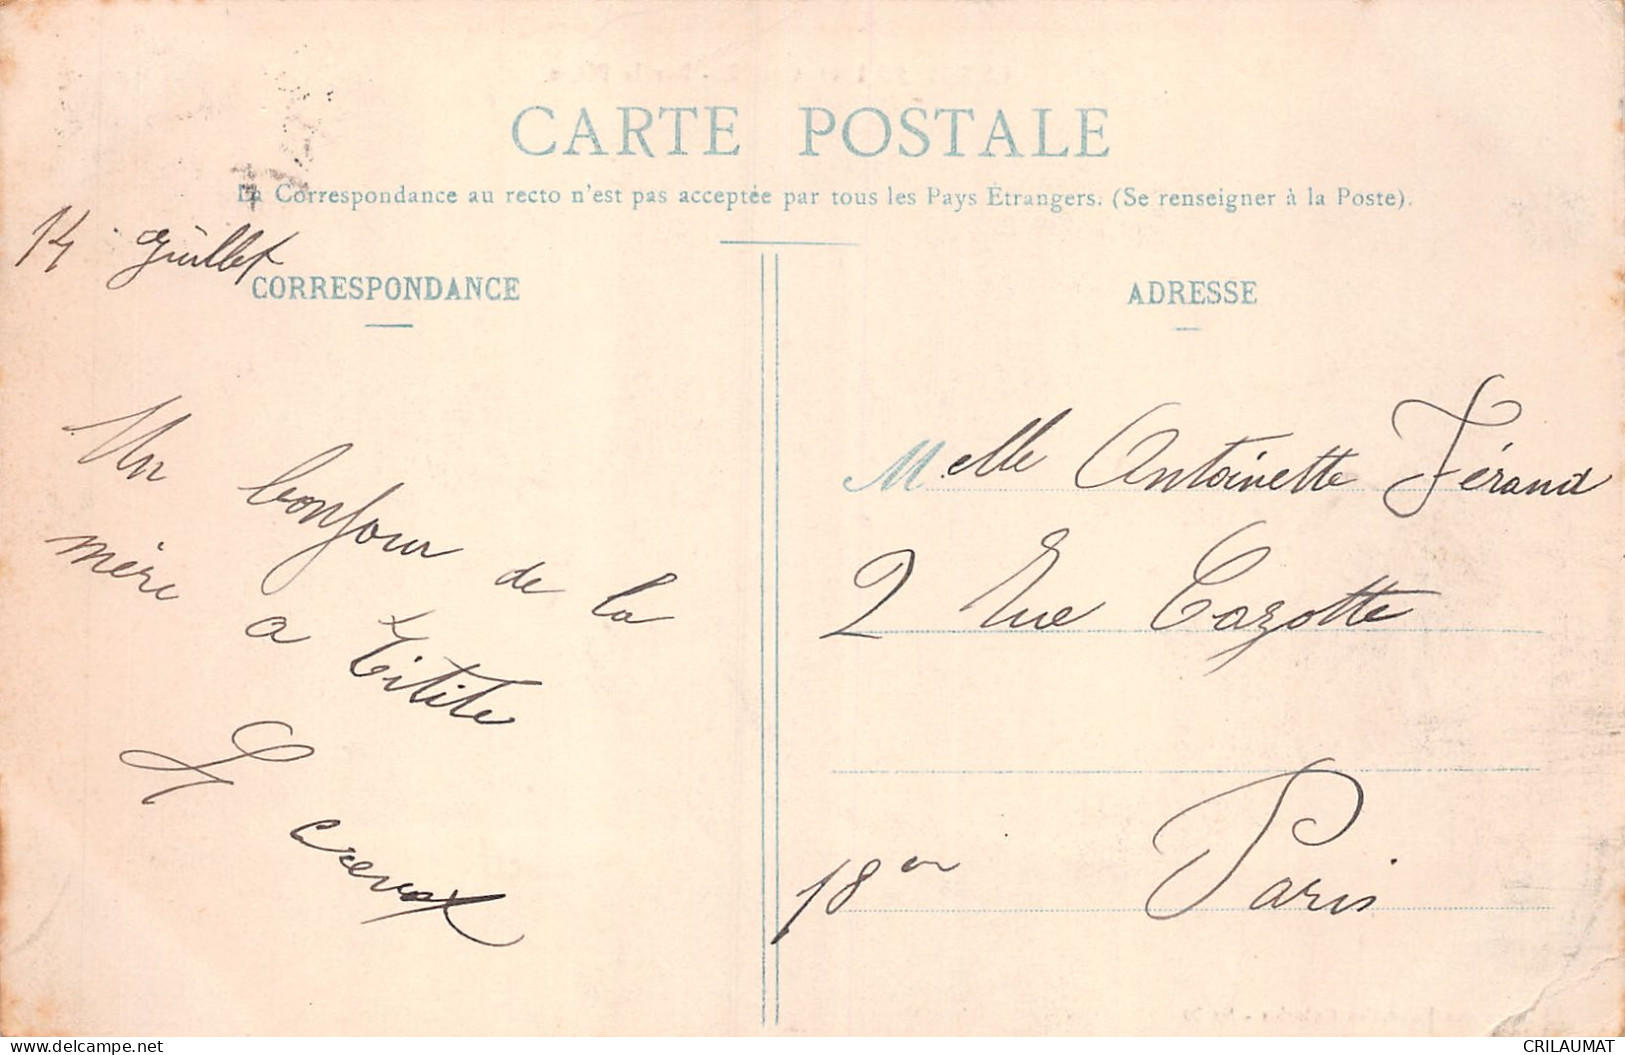 CARTE POSTALE
La Correspondance au recto n'est pas acceptée par tous les Pays Étrangers. (Se renseigner à la Poste).
14 Juillet
CORRESPONDANCE
Un bonjour de la
mère a Titite
ADRESSE
Melle Antoinette Férand
2 Rue Cazotte
18er Paris
CRILAUMAT